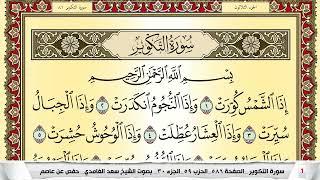 الجزء الثلاثون
سورة التكوير ٨١
سُورَةُ التَّكْوِيرِ
بِسْمِ اللَّهِ الرَّحْمَٰنِ الرَّحِيمِ
إِذَا الشَّمْسُ كُوِّرَتْ ١ وَإِذَا النُّجُومُ انكَدَرَتْ ٢ وَإِذَا الْجِبَالُ
سُيِّرَتْ ٣ وَإِذَا الْعِشَارُ عُطِّلَتْ ٤ وَإِذَا الْوُحُوشُ حُشِرَتْ ٥
1 سورة التكوير الصفحة ٥٨٦ الحزب ٥٩ الجزء ٣٠ بصوت الشيخ سعد الغامدي . حفص عن عاصم